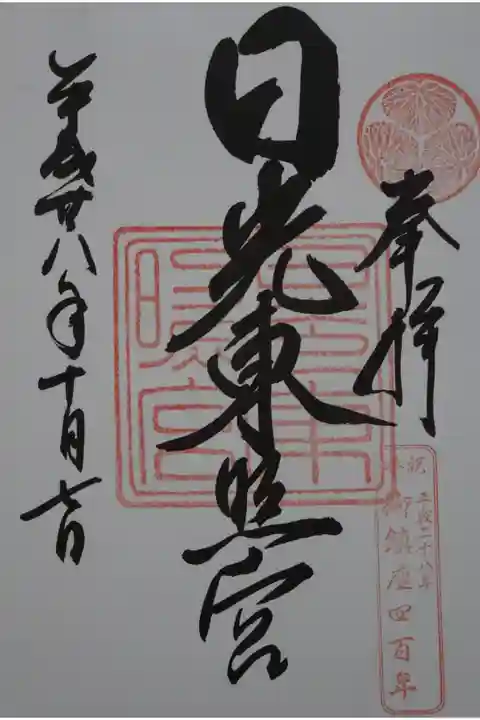 奉拝
奉祝
平成二十八年
御鎮座四百年
日光東照宮
平成廿八年十月七日